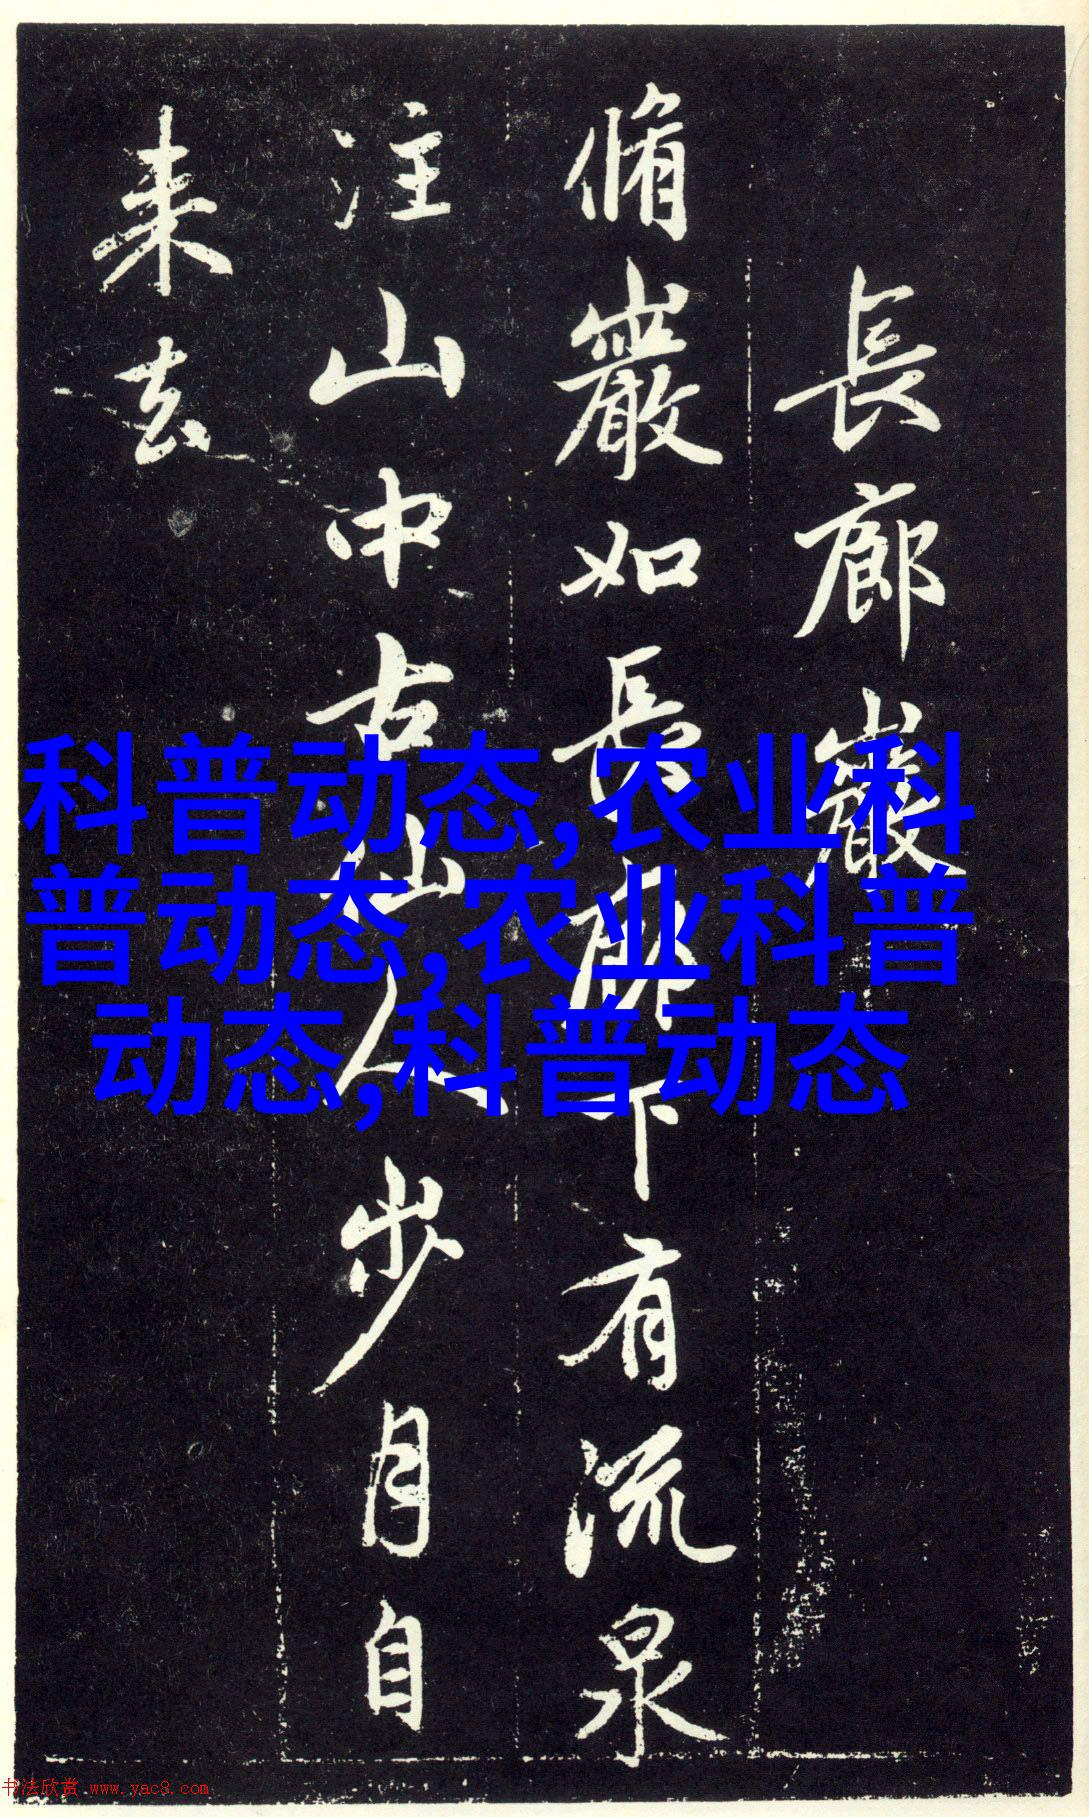 長廊巖
脩巖如長廊下有流泉
注山中古仙人步月自
来去
科普动态,农业科
普动态,农业科普
动态,科普动态
书法欣赏 www.yac8.com